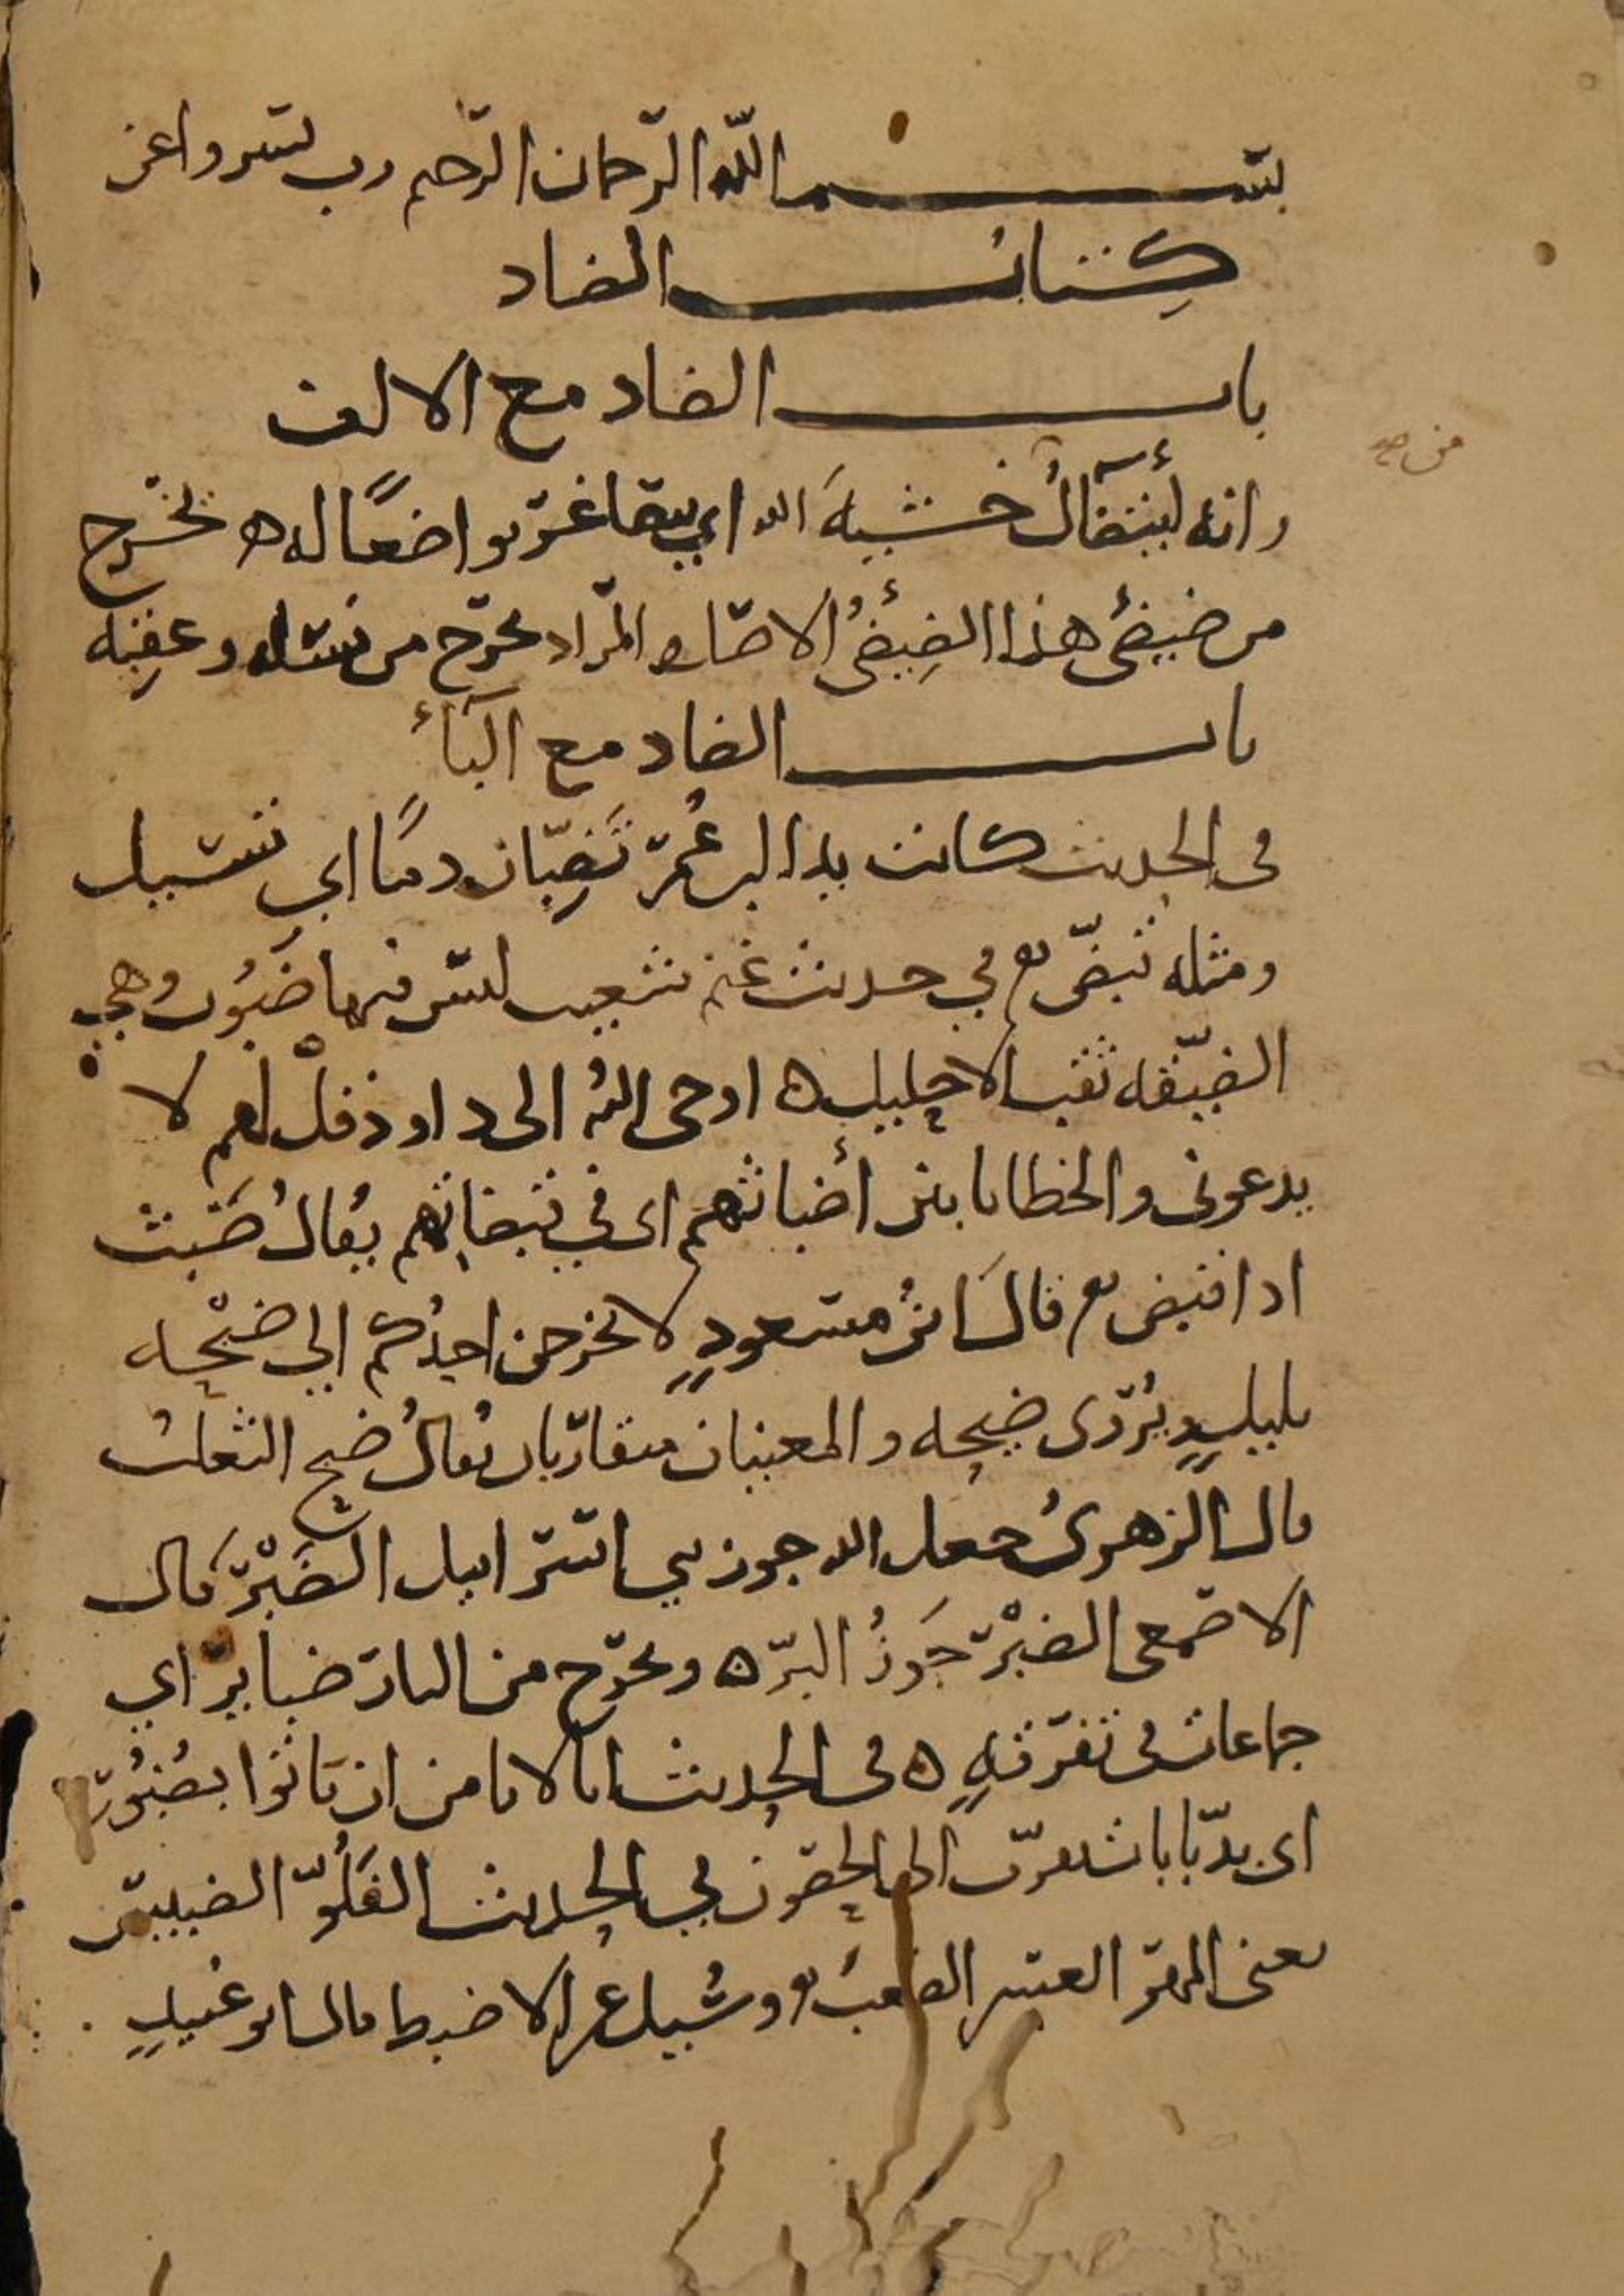 بسم الله الرحمان الرحيم رب يسر واعن
كتاب الضاد
باب الضاد مع الالف
وانه ليتضآل خشية الله اي يتصاغر تواضعًا له ه يخرج
من صح
من ضيضئ هذا الضيضئ الاصل والمراد يخرج من نسله وعقبه
باب الضاد مع البآء
في الحديث كانت يدا ابن عمر تضبّان دمًا اي تسيل
ومثله تبضّ ه في حديث غنم شعيب ليس فيها ضبوب وهي
الضيّقه ثقب الاحليل ه اوحى الله الى داود قل لهم لا
يدعوني والخطايا بين أضباثهم اى في قبضاتهم يقال ضبثت
اذا قبض ه قال ابن مسعودٍ لا يخرجن احدكم الي ضبْحه
بليلٍ ويُروى صيحه والمعنيان متقاربان يقال ضبح الثعلب
قال الزهرى جعل الله جوز بني اسراييل الضَبْر قال
الاصمعى الضبْر جَوزُ البرّ ه ويخرج من النار ضباير اي
جماعات في تفرقةٍ ه في الحديث انا لا نامن ان ياتوا بضُبُور
اى بدّبابات تقرّب الى الحصون في الحديث الفَلُوّ الضبيس
يعنى المهر العسر الصعب ه وسُيل عن الاضبط قال ابو عبيدٍ